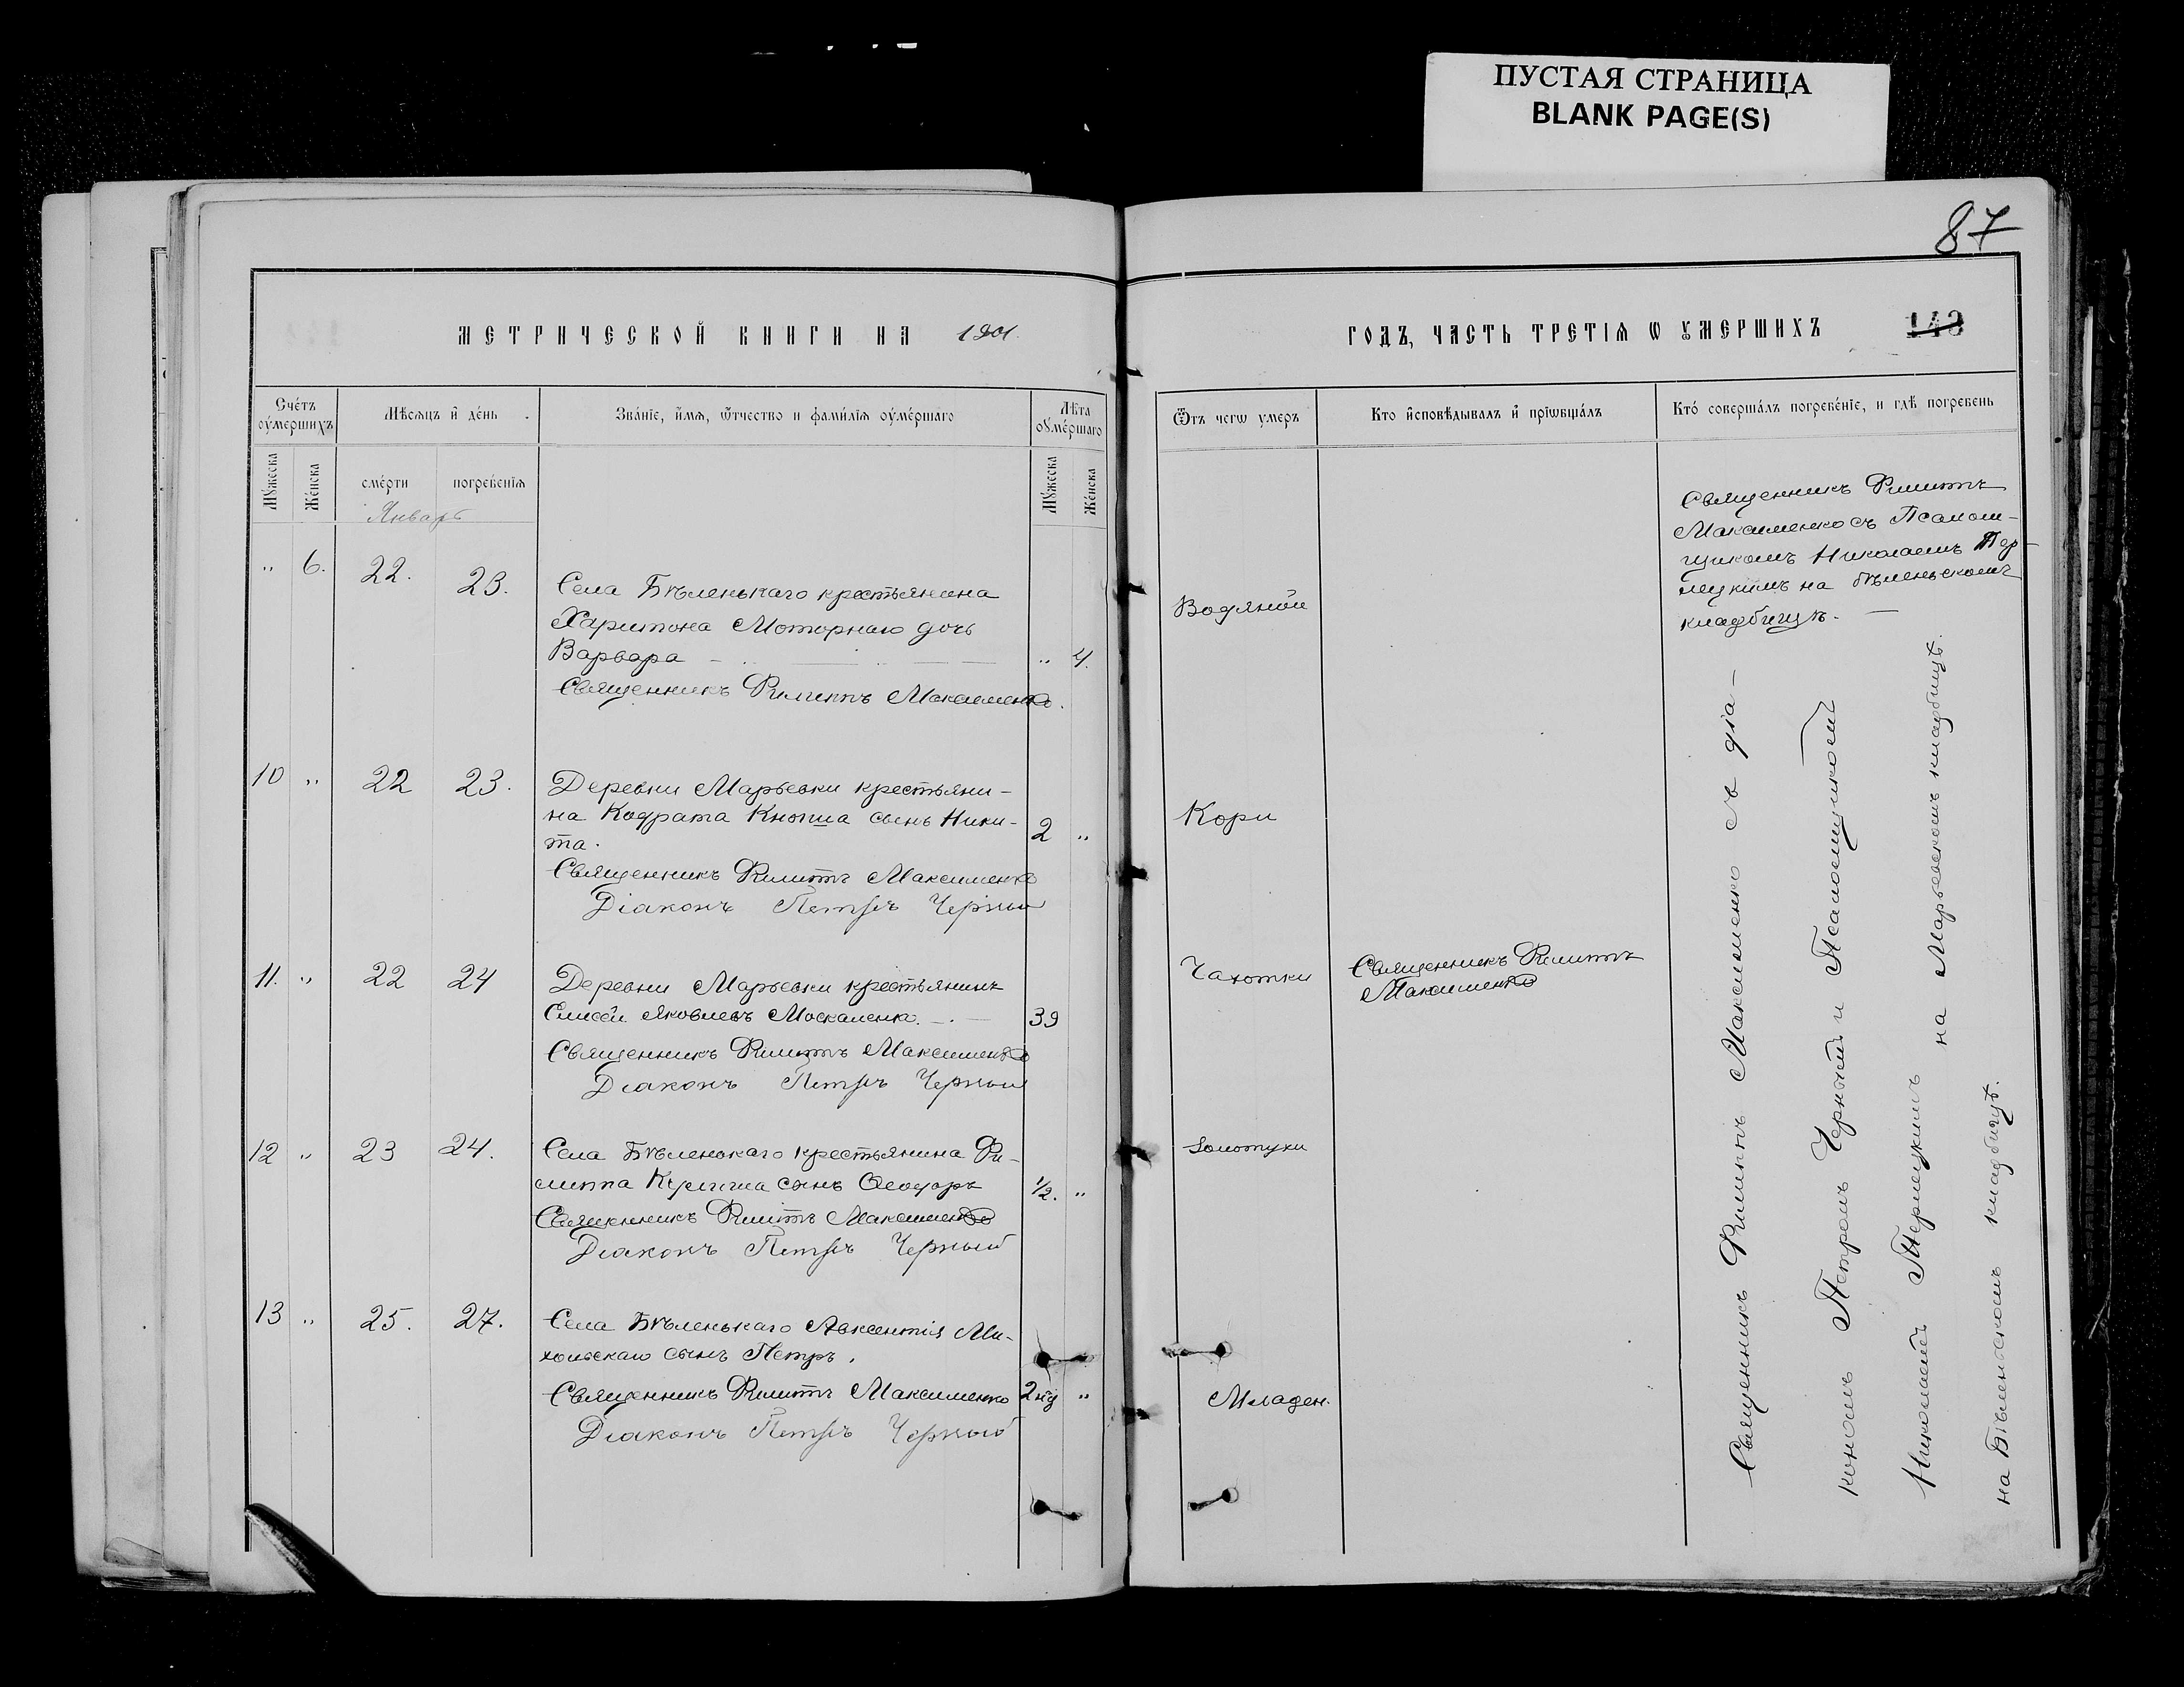 ПУСТАЯ СТРАНИЦА
BLANK PAGE(S)
87
МЕТРИЧЕСКОЙ КНИГИ НА 1901.
Счéтъ оумершихъ
Мѣсяцъ и день
Званіе, имя, ѿтчество и фамилія оумершаго
Лѣта оумершаго
Мужеска
Женска
смерти
погребенія
Мужеска
Женска
Январь
" 6. 22. 23. Села Бѣленькаго крестьянина
Харитона Моторнаго дочь
Варвара " 4.
Священникъ Филиппъ Максименко.
10 " 22 23. Деревни Марьевки крестьяни-
на Кодрата сынъ Ники-
та. 2 "
Священникъ Филиппъ Максименко
Діаконъ Петръ Черный
11. " 22 24 Деревни Марьевки крестьянинъ
Яковлевъ Москаленко. 39
Священникъ Филиппъ Максименко
Діаконъ Петръ Черный
12 " 23 24. Села Бѣленькаго крестьянина Фи-
липпа сынъ Ѳеодоръ 1/2. "
Священникъ Филиппъ Максименко
Діаконъ Петръ Черный
13 " 25. 27. Села Бѣленькаго Авксентія Ми-
хольскаго сынъ Петръ.
Священникъ Филиппъ Максименко 2 нд "
Діаконъ Петръ Черный
ГОДЪ, ЧАСТЬ ТРЕТІЯ Ѡ УМЕРШИХЪ
143
Ѿтъ чегѡ умеръ
Кто исповѣдывалъ и пріѡбщалъ
Кто совершалъ погребеніе, и гдѣ погребенъ
Водяной
Священникъ Филиппъ
Максименко съ Псалом-
щикомъ Николаемъ Тер-
лецкимъ на бѣленьскомъ
кладбищѣ. —
Кори
Чахотки
Священникъ Филиппъ
Максименко
Золотухи
Младен.
Священникъ Филиппъ Максименко съ діа-
кономъ Петромъ Чернымъ и Псаломщикомъ
Николаемъ Терлецкимъ на Марьевскомъ кладбищѣ.
на Бѣленьскомъ кладбищѣ.